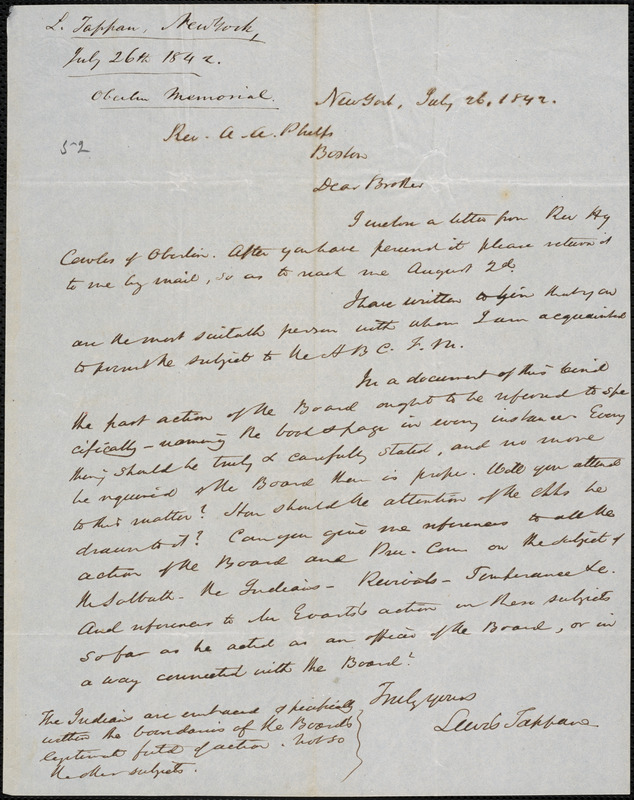 L. Tappan, New York,
July 26th 1842.
Oberlin Memorial.
52
New York, July 26, 1842.
Rev. A. A. Phelps
Boston
Dear Brother
I inclose a letter from Rev Hy
Cowles of Oberlin. After you have perused it please return it
to me by mail, so as to reach me August 2d.
I have written to him that you
are the most suitable person with whom I am acquainted
to present the subject to the A B C. F. M.
In a document of this kind
the past action of the Board ought to be referred to spe
cifically - naming the book & page in every instance. Every
thing should be truly & carefully stated, and no more
be required of the Board than is proper. Will you attend
to this matter? How should the attention of the chhs be
drawn to it? Can you give me references to all the
action of the Board and Pru. Com on the subject of
the Sabbath - the Indians - Revivals - Temperance &c.
And references to Mr Evarts's action on these subjects
so far as he acted as an officer of the Board, or in
a way connected with the Board?
Truly yours
Lewis Tappan
The Indians are embraced specifically
within the boundaries of the Board's
legitimate field of action. Not so
the other subjects.